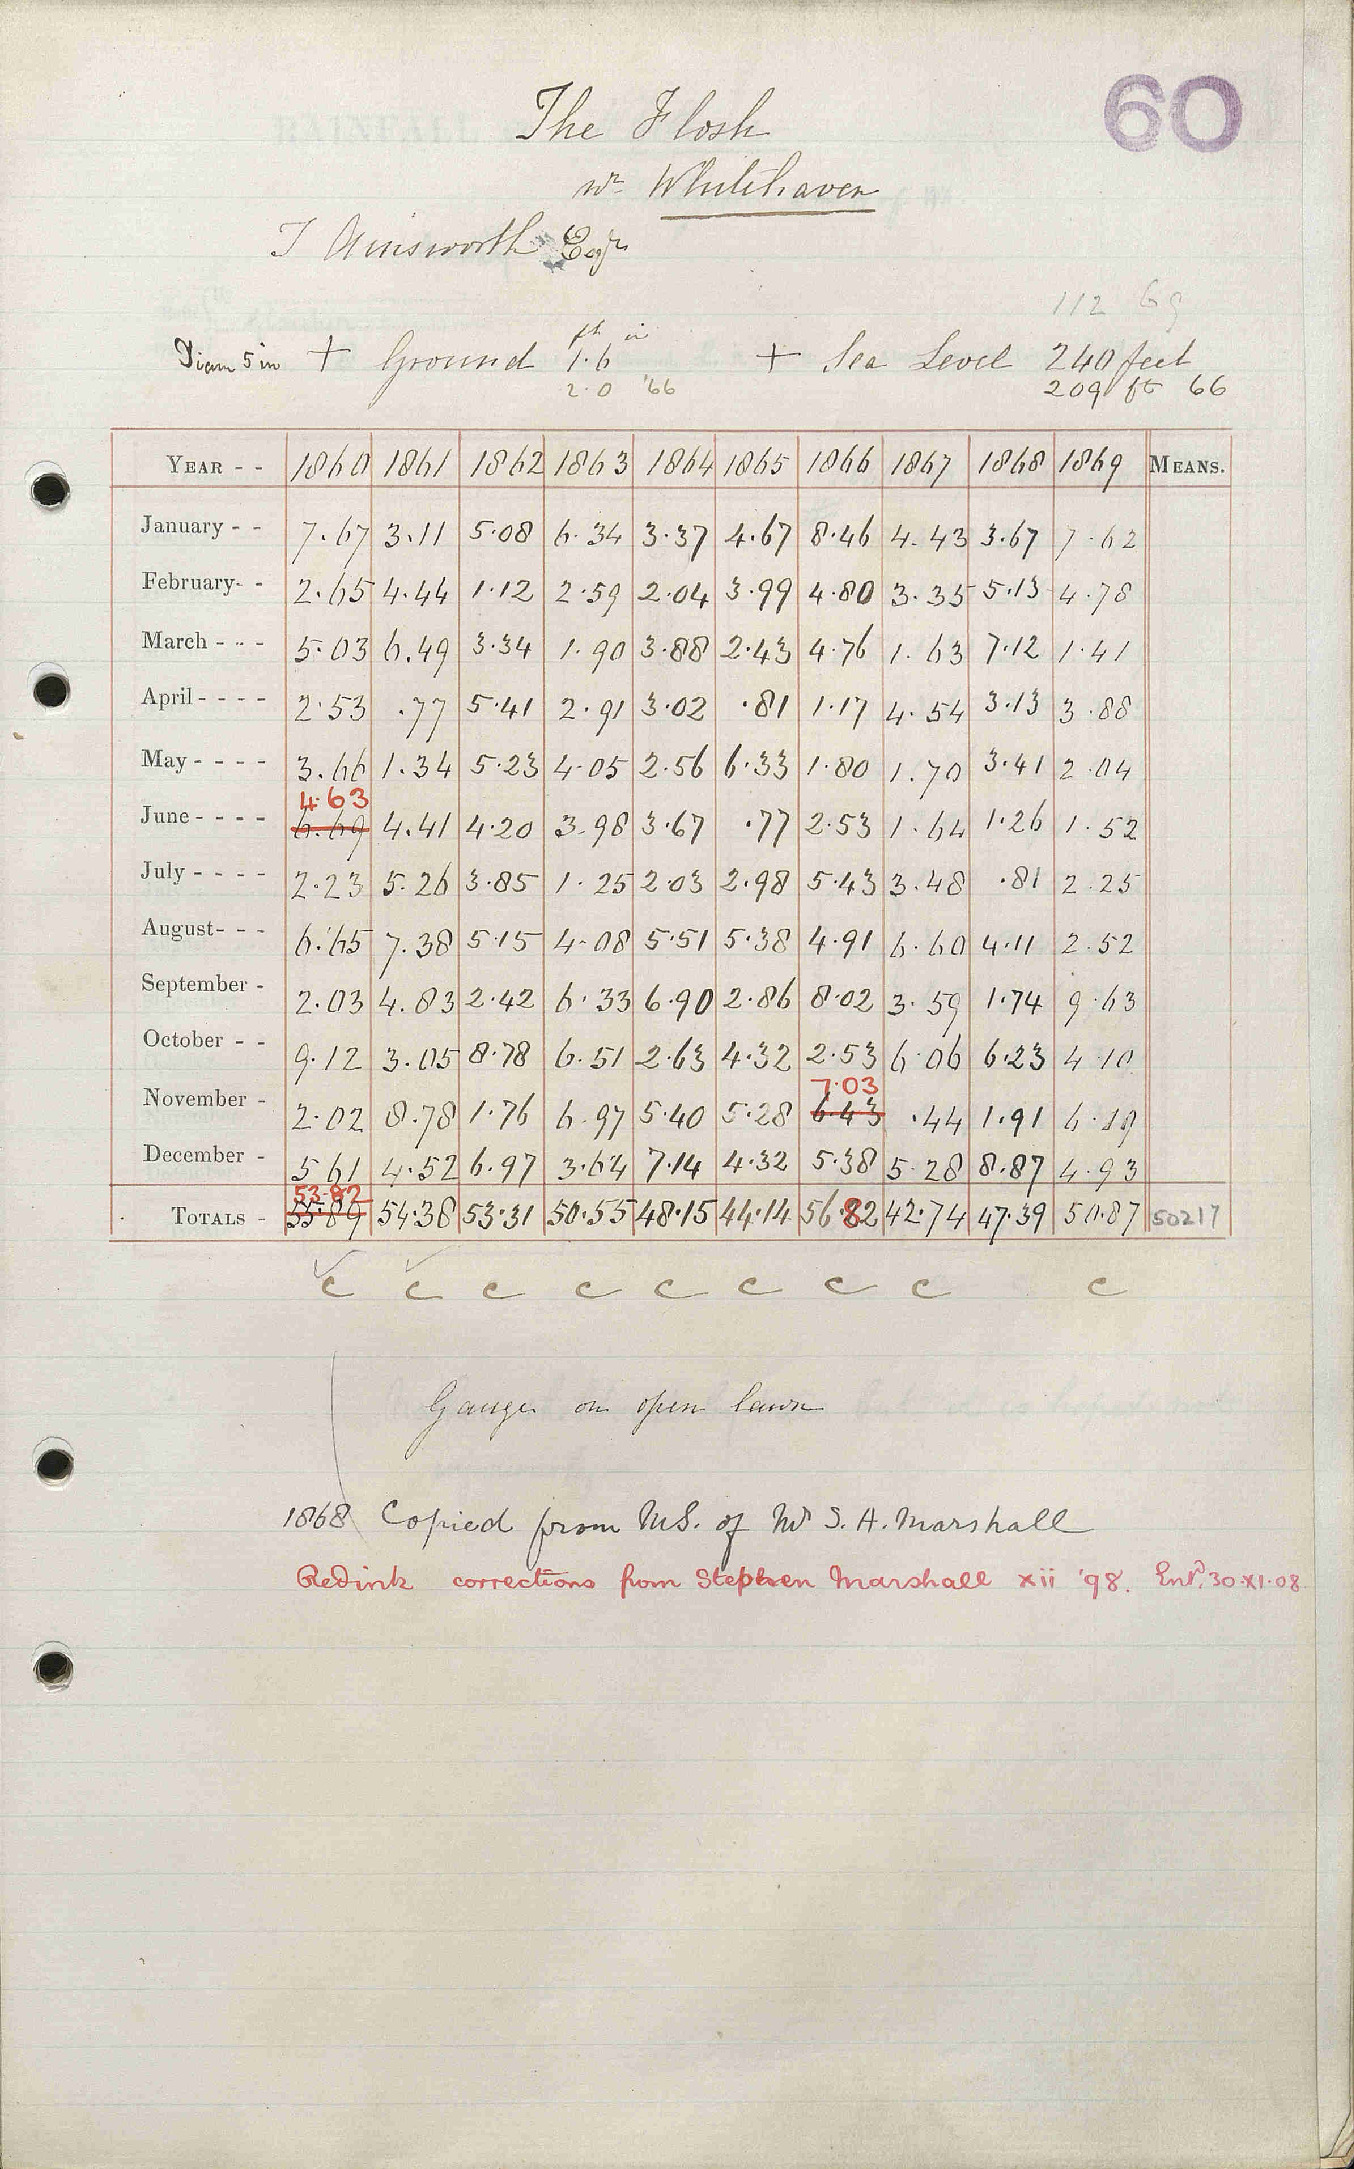 60
The Flosh
nr Whitehaven
T Ainsworth Esqr
112 69
Diam 5 in + Ground 1 ft .6 in + Sea Level 240 feet
2.0 '66 209 ft 66
YEAR - - 1860 1861 1862 1863 1864 1865 1866 1867 1868 1869 MEANS.
January - - 7.67 3.11 5.08 6.34 3.37 4.67 8.46 4.43 3.67 7.62
February- - 2.65 4.44 1.12 2.59 2.04 3.99 4.80 3.35 5.13 4.78
March - - - 5.03 6.49 3.34 1.90 3.88 2.43 4.76 1.63 7.12 1.41
April - - - - 2.53 .77 5.41 2.91 3.02 .81 1.17 4.54 3.13 3.88
May - - - - 3.66 1.34 5.23 4.05 2.56 6.33 1.80 1.70 3.41 2.04
4.63
June - - - - 6.69 4.41 4.20 3.98 3.67 .77 2.53 1.64 1.26 1.52
July - - - - 2.23 5.26 3.85 1.25 2.03 2.98 5.43 3.48 .81 2.25
August- - - 6.65 7.38 5.15 4.08 5.51 5.38 4.91 6.60 4.11 2.52
September - 2.03 4.83 2.42 6.33 6.90 2.86 8.02 3.59 1.74 9.63
October - - 9.12 3.05 8.78 6.51 2.63 4.32 2.53 6.06 6.23 4.10
7.03
November - 2.02 8.78 1.76 6.97 5.40 5.28 6.43 .44 1.91 6.19
December - 5.61 4.52 6.97 3.64 7.14 4.32 5.38 5.28 8.87 4.93
53.82
TOTALS - 55.89 54.38 53.31 50.55 48.15 44.14 56.82 42.74 47.39 50.87 50217
c c c c c c c c c
Gauge on open lawn
1868 Copied from MS. of Mr S. A. Marshall
Red ink corrections from Stephen Marshall xii '98. Entd. 30.XI.08